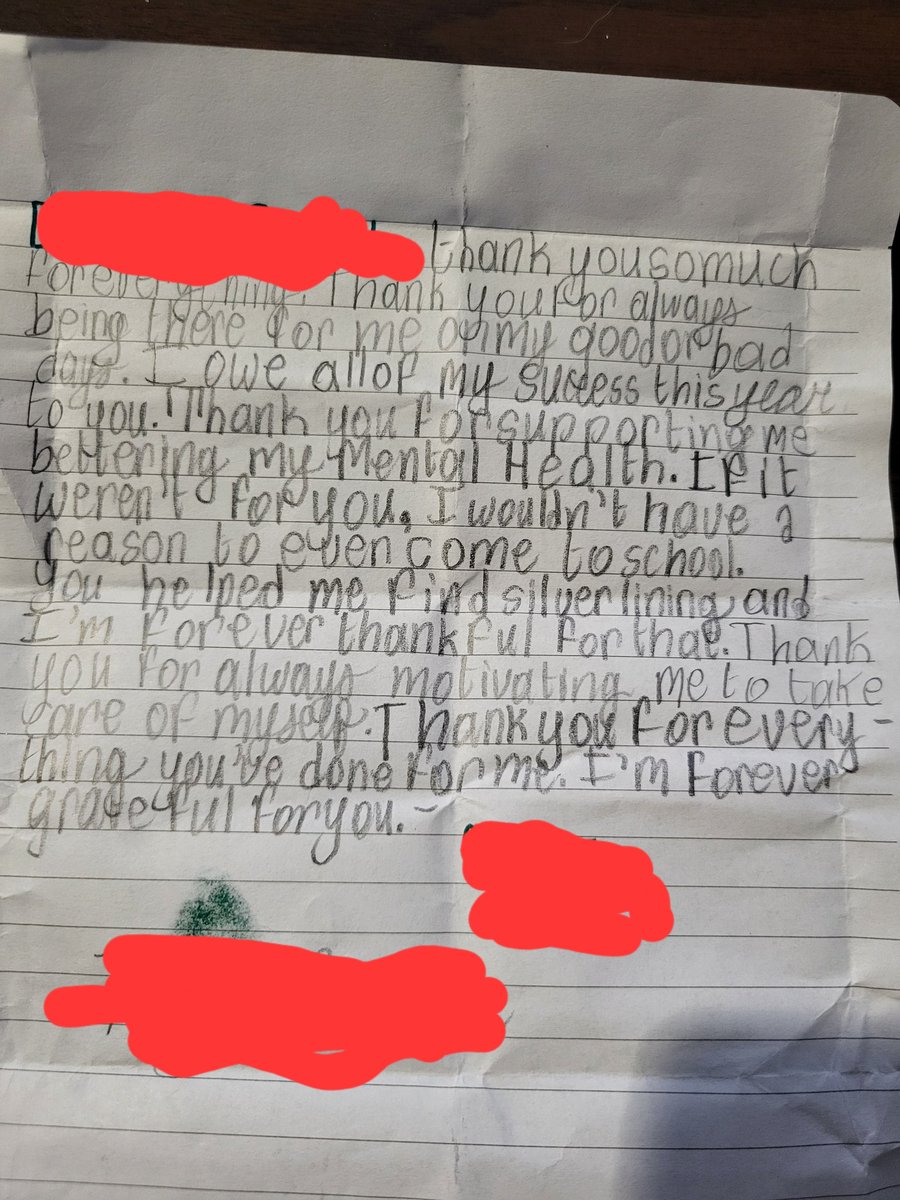 thank you so much
for everything. Thank you for always
being there for me on my good or bad
days. I owe all of my success this year
to you. Thank you for supporting me
bettering my Mental Health. If it
weren't for you, I wouldn't have a
reason to even come to school.
You helped me find silver lining and
I'm forever thankful for that. Thank
you for always motivating me to take
care of myself. Thank you for every-
thing you've done for me. I'm forever
grateful for you. -